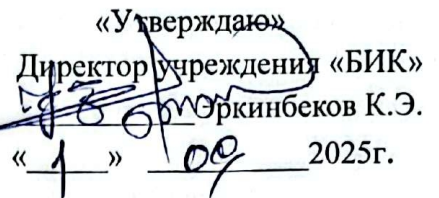 «Утверждаю»
Директор учреждения «БИК»
Эркинбеков К.Э.
«1» 09 2025г.